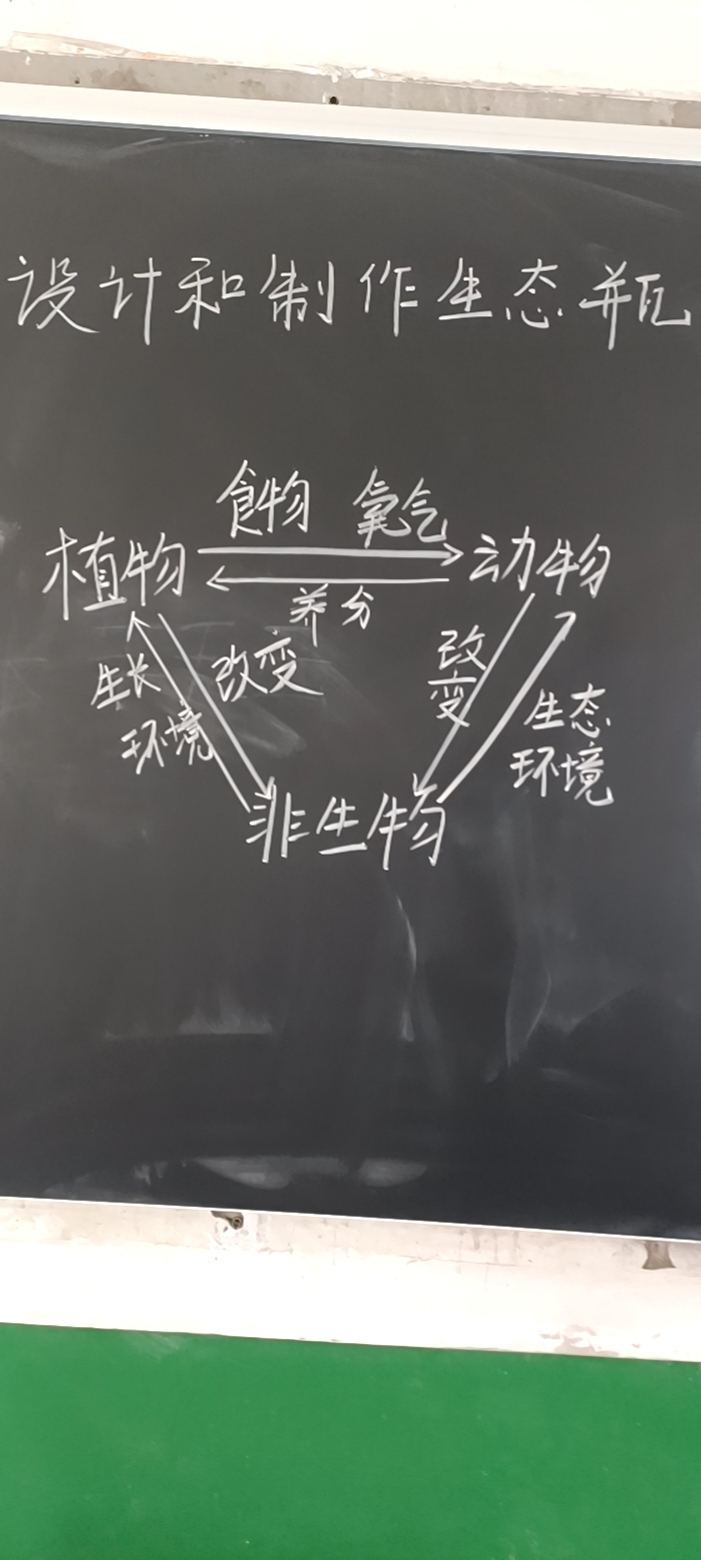 设计和制作生态瓶
食物 氧气
植物 动物
养分
生长 改变 改变 生态
环境 环境
非生物